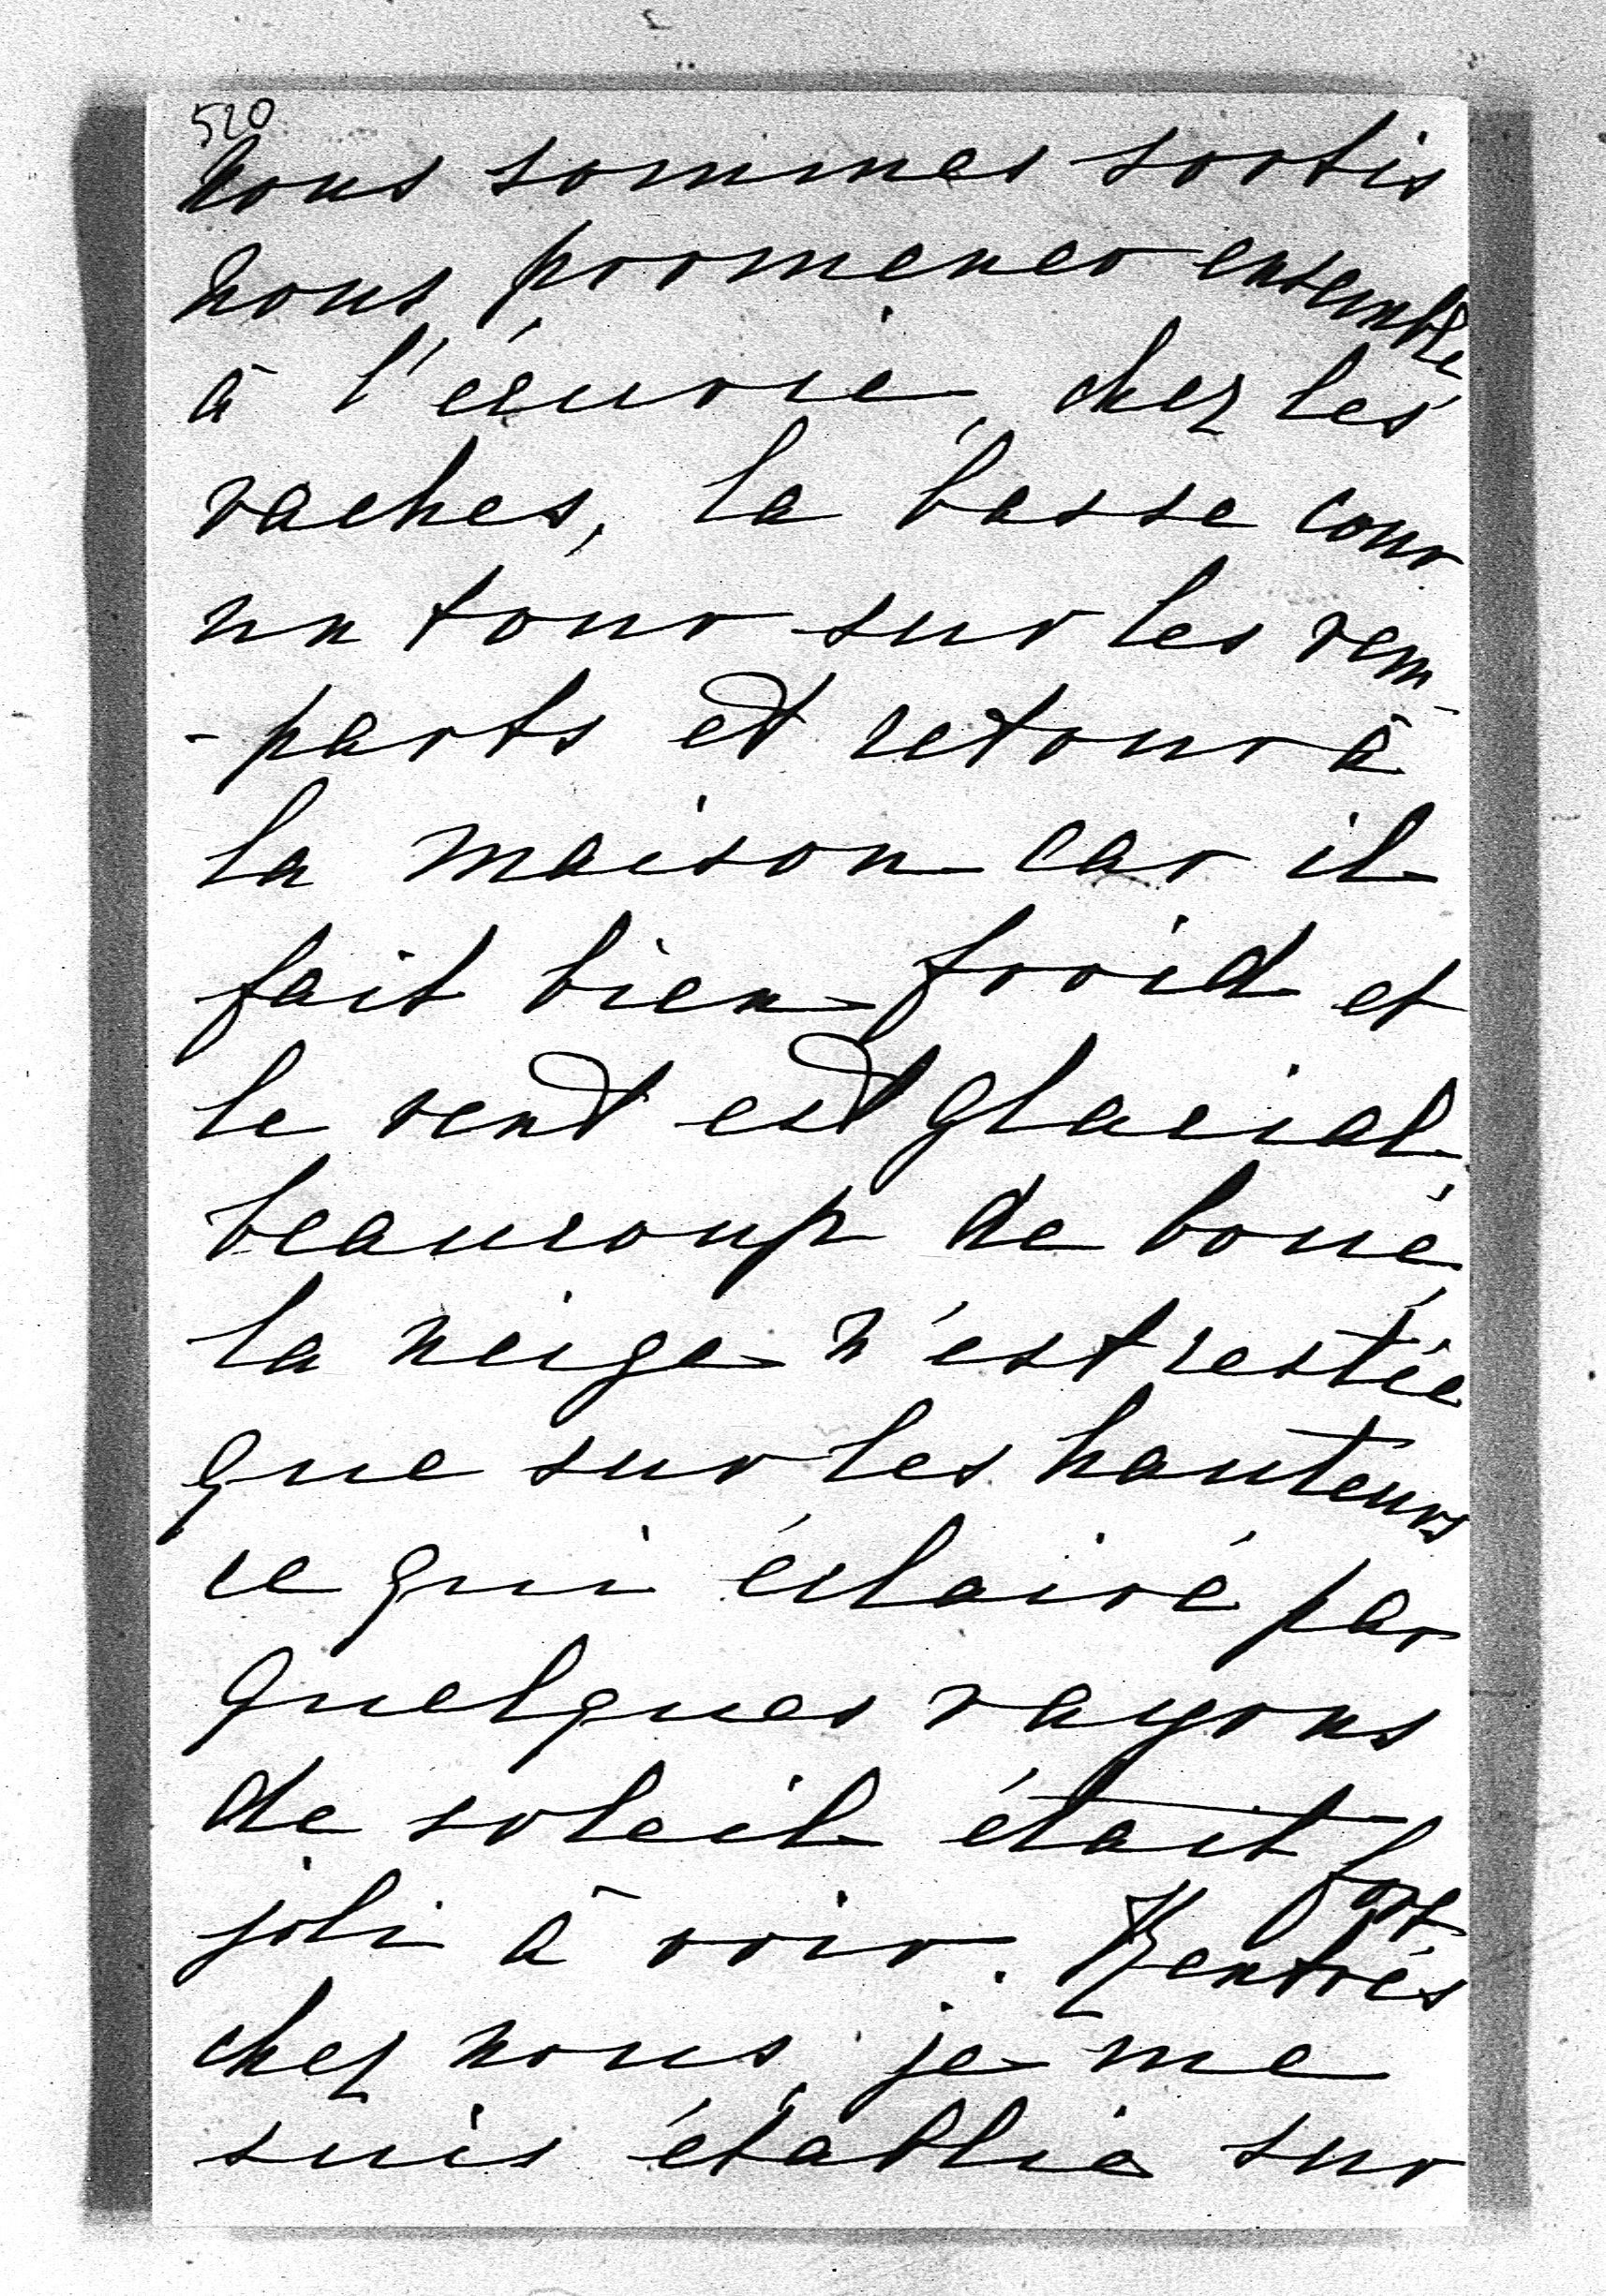 520
nous sommes sortis
nous promener ensemble
à l'écurie, chez les
vaches, la basse cour
un tour sur les rem-
-parts et retour à
la maison car il
fait bien froid et
le vent est glacial,
beaucoup de boue,
la neige n'est restée
que sur les hauteurs
ce qui éclairé par
quelques rayons
de soleil était fort
joli à voir. Rentrés
chez nous, je me
suis établie sur